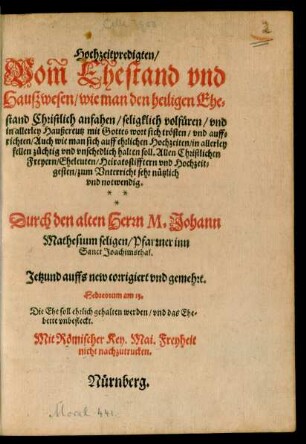 2
Hochzeitpredigten/
Vom̃ Ehestand vnd
Haußwesen/ wie man den heiligen Ehe-
stand Christlich anfahen/ seligklich volfüren/ vnd
in allerley Haußcreutz mit Gottes wort sich trösten/ vnd auff-
richten/ Auch wie man sich auff ehrlichen Hochzeiten/ in allerley
fellen züchtig vnd vnschedlich halten soll. Allen Christlichen
Freyern/ Eheleuten/ Heiratsstifftern vnd Hochzeit-
gesten/ zum Vnterricht sehr nützlich
vnd notwendig.
* *
*
Durch den alten Herrn M. Johann
Mathesium seligen/ Pfarrner inn
Sanct Joachimsthal.
Jetzund auffs new corrigiert vnd gemehrt.
Hebreorum am 13.
Die Ehe soll ehrlich gehalten werden/ vnd das Ehe-
bette vnbefleckt.
Mit Römischer Key. Mai. Freyheit
nicht nachzutrucken.
Nürnberg.